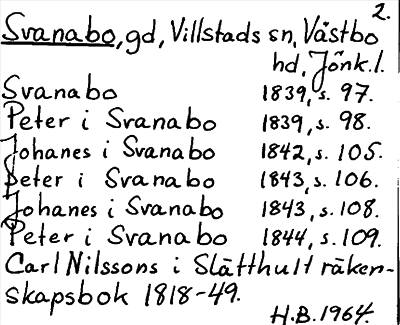 2.
Svanabo, gd, Villstads sn, Västbo
hd, Jönk.l.
Svanabo 1839, s. 97.
Peter i Svanabo 1839, s. 98.
Johanes i Svanabo 1842, s. 105.
Peter i Svanabo 1843, s. 106.
Johanes i Svanabo 1843, s. 108.
Peter i Svanabo 1844, s. 109.
Carl Nilssons i Slätthult räken-
skapsbok 1818-49.
H.B. 1964.